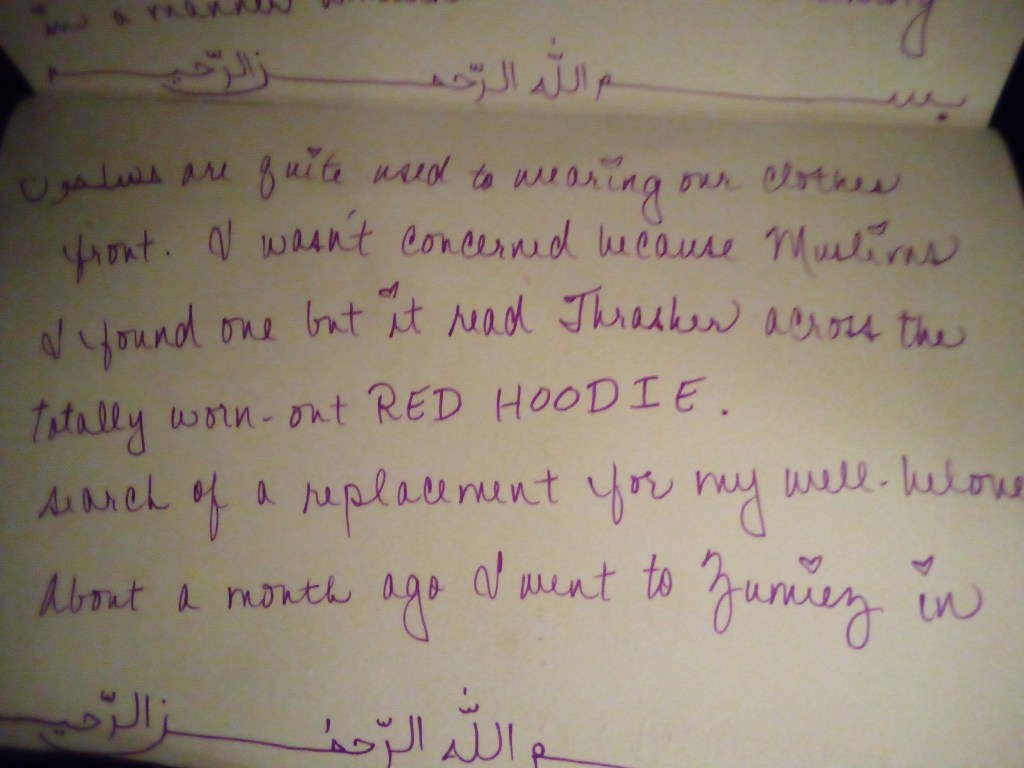 in a manner
بســــــم اللّه الرّحمــــن الرّحيــــم
مسلمون are quite used to wearing our clothes
front. I wasn't concerned because Muslims
I found one but it read Thrasher across the
totally worn-out RED HOODIE.
search of a replacement for my well-belove
About a month ago I went to Zumiez in
ــــم اللّه الرّحمــــن الرّحيــــ